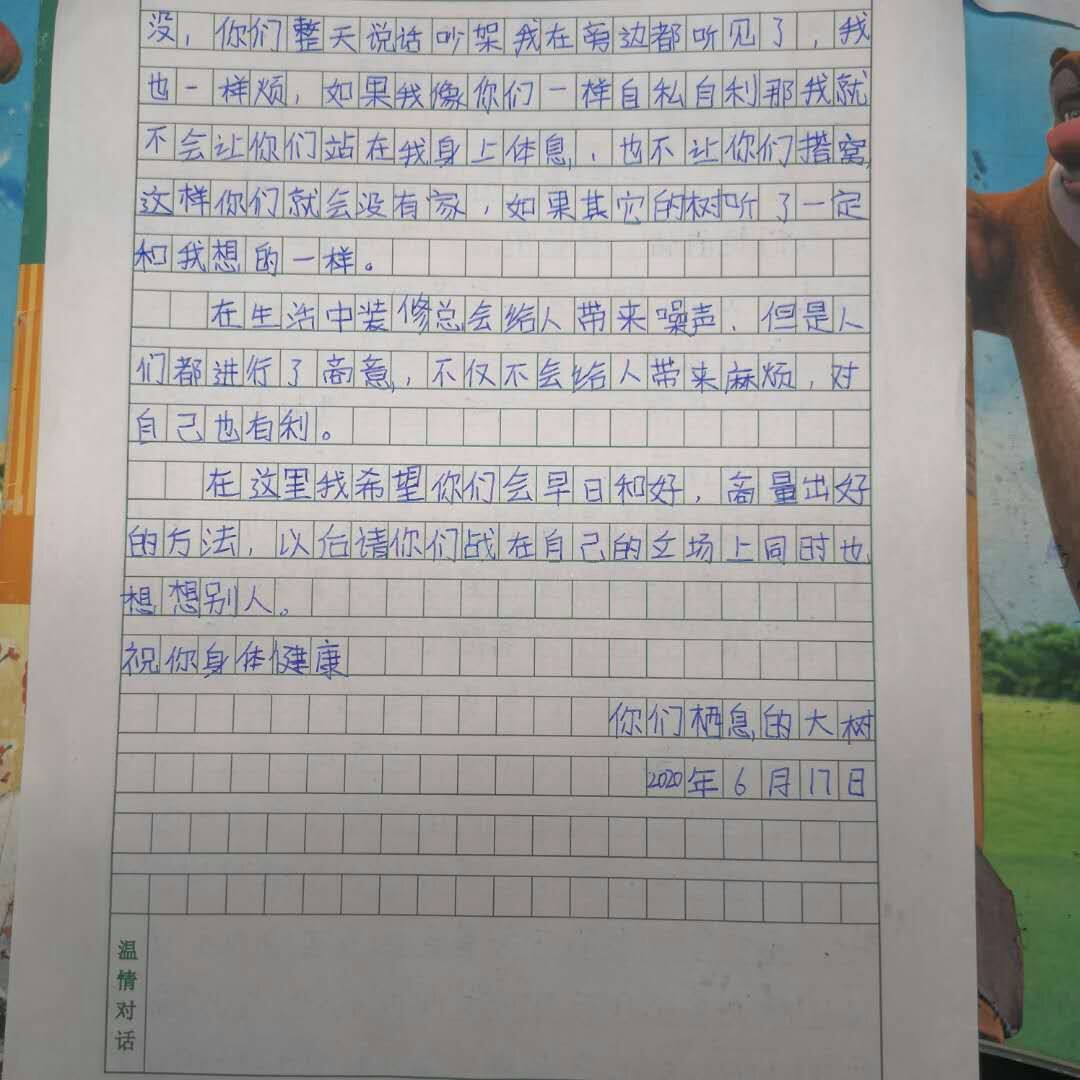 没，你们整天说话吵架我在旁边都听见了，我
也一样烦，如果我像你们一样自私自利那我就
不会让你们站在我身上体息，也不让你们搭窝，
这样你们就会没有家，如果其它的树听了一定
和我想的一样。
在生活中装修总会给人带来噪声，但是人
们都进行了商意，不仅不会给人带来麻烦，对
自己也有利。
在这里我希望你们会早日和好，商量出好
的方法，以后请你们战在自己的立场上同时也
想想别人。
祝你身体健康
你们栖息的大树
2020年6月17日
温情对话